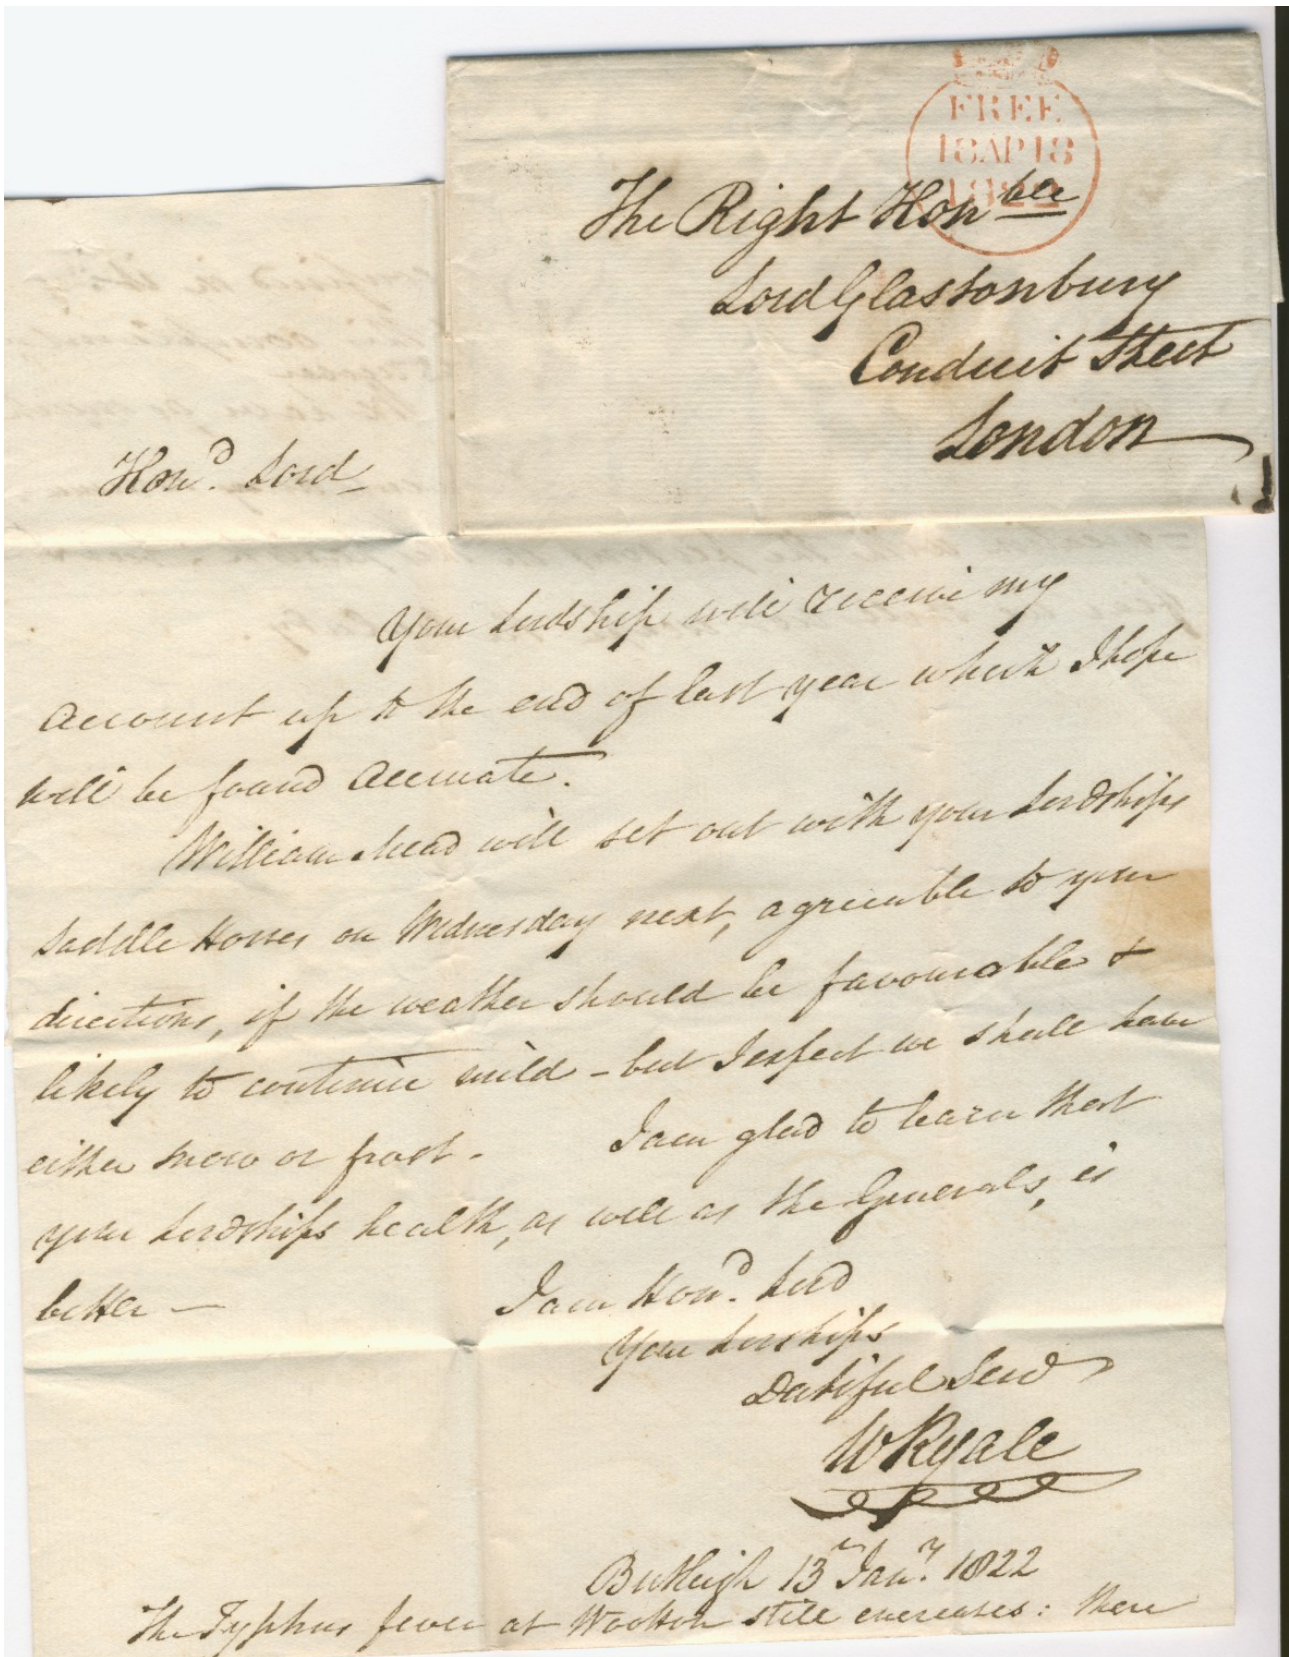 FREE
18AP18
1822
The Right Honble
Lord Glastonbury
Conduit Street
London
Hond. Lord
Your Lordship will receive my
Account up to the end of last year which I hope
will be found Accurate.
William Mead will set out with your Lordships
Saddle Horses on Wednesday next, agreeable to your
directions, if the weather should be favourable &
likely to continue mild - but I expect we shall have
either snow or frost. I am glad to learn that
your Lordships health, as well as the Generals, is
better —
I am Hond. Lord
Your Lorships
Dutiful Servt
W Ryall
Butleigh 13th Jany. 1822
The Typhus fever at Wootton still encreases: there